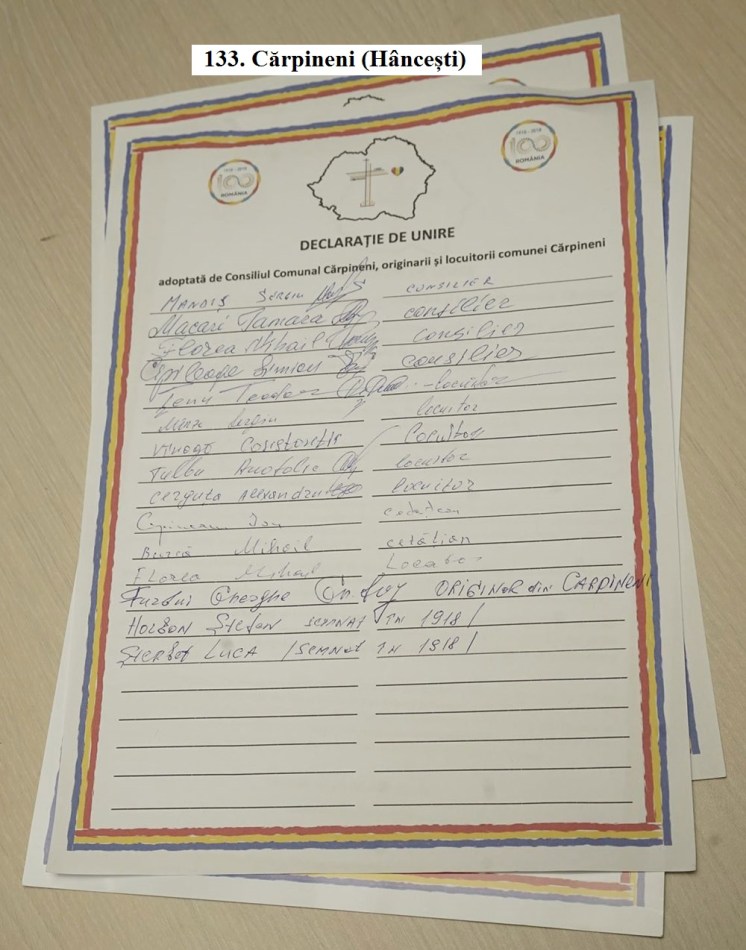 133. Cărpineni (Hâncești)
1918 - 2018
100
ROMÂNIA
1918 - 2018
100
ROMÂNIA
DECLARAȚIE DE UNIRE
adoptată de Consiliul Comunal Cărpineni, originarii și locuitorii comunei Cărpineni
MANOIȘ SERGIU CONSILIER
Macari Tamara consilier
Florea Mihail consilier
Simion consilier
Teodor locuitor
locuitor
Constantin locuitor
Tulbu Anatolie locuitor
Alexandru locuitor
Ion cetățean
Mihail cetățian
Florea Mihail
Gheorghe ORIGINAR din CARPINENI
HOLBAN Ștefan SEMNAT IN 1918/
LUCA /SEMNAT IN 1918/